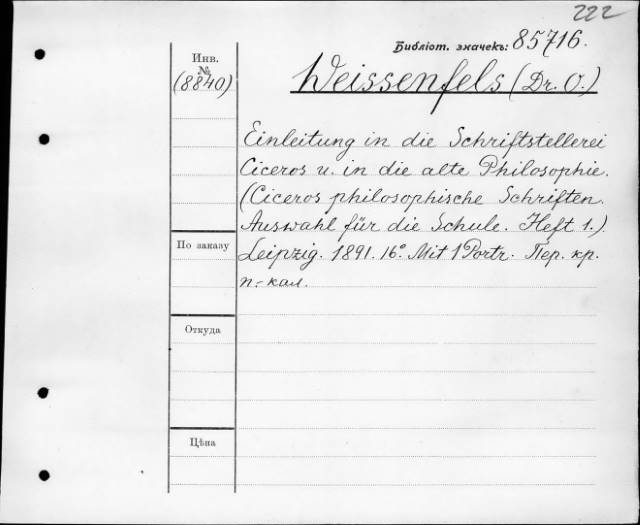 222
Библіот. значекъ: 85716.
Инв.
№
(8840)
Weissenfels (Dr. O.)
Einleitung in die Schriftstellerei
Ciceros u. in die alte Philosophie.
(Ciceros philosophische Schriften.
Auswahl für die Schule. Heft 1.)
По заказу
Leipzig. 1891. 16° Mit 1 Portr. Пер. кр.
п.-кал.
Откуда
Цѣна